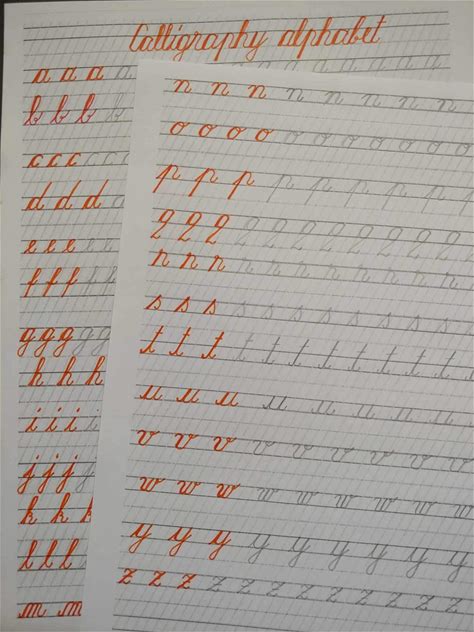 Calligraphy alphabet
a a a a
b b b b
c c c c c c
d d d d
e e e e e
f f f f f
g g g g g
h h h
i i i i
j j j j
k k k
l l l l
m m
n n n n n n n n
o o o o o o o o o o o
p p p p p p p p p
q q q q q q q q q q q
r r r r r r r r r r
s s s s s s s s s s s
t t t t t t t t t t t
u u u u u u u u
v v v v v v v v v
w w w w w w w w w
y y y y y y y y y
z z z z z z z z z z z z z